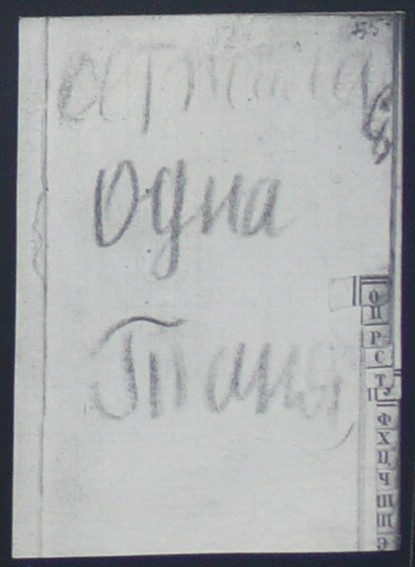 осталась
одна
Таня
О
П
Р
С
Т
Ф
Х
Ц
Ч
Ш
Щ
Э